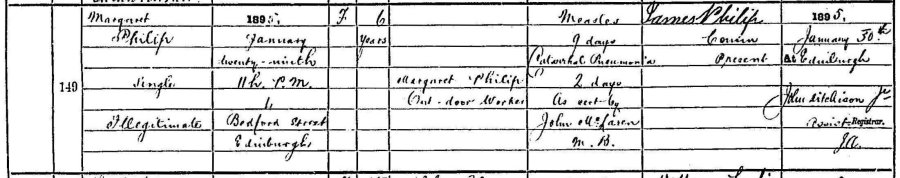 Margaret 1895. F. 6 Measles James Philip 1895.
Philip January Years 9 days Cousin January 30th
twenty-ninth Catarrhal Pneumonia Present at Edinburgh
149 Single 11h. P.M. Margaret Philip 2 days
Out-door Worker As cert by John Aitchison Jr
Illegitimate Bedford Street John McLaren Assist. Registrar.
Edinburgh M.B. JA.